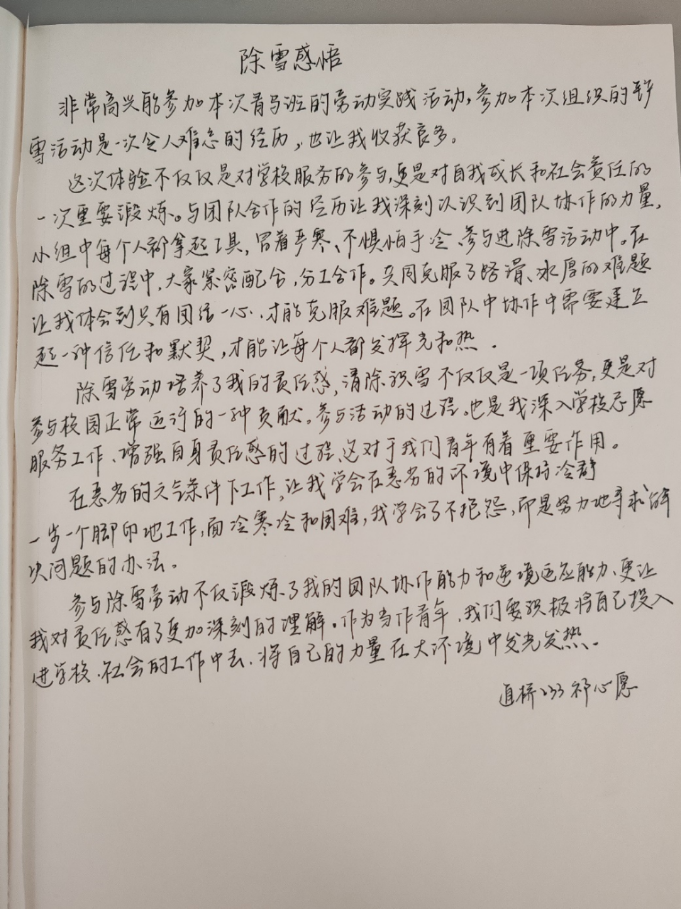 除雪感悟
非常高兴能参加本次青马班的劳动实践活动,参加本次组织的除
雪活动是一次令人难忘的经历,也让我收获良多。
这次体验不仅仅是对学校服务的参与,更是对自我成长和社会责任的
一次重要锻炼。与团队合作的经历让我深刻认识到团队协作的力量,
小组中每个人都拿起工具,冒着严寒、不惧怕手冷、参与进除雪活动中。在
除雪的过程中,大家紧密配合,分工合作。共同克服了路滑、冰厚的难题
让我体会到只有团结一心,才能克服难题。在团队中协作中需要建立
起一种信任和默契,才能让每个人都发挥光和热.
除雪劳动培养了我的责任感,清除积雪不仅仅是一项任务,更是对
参与校园正常运行的一种贡献。参与活动的过程。也是我深入学校志愿
服务工作、增强自身责任感的过程,这对于我们青年有着重要作用。
在恶劣的天气条件下工作,让我学会在恶劣的环境中保持冷静
一步一个脚印地工作,面冷寒冷和困难,我学会了不抱怨,而是努力地寻求解
决问题的办法。
参与除雪劳动不仅锻炼了我的团队协作能力和逆境适应能力、更让
我对责任感有了更加深刻的理解。作为当作青年,我们要积极将自己投入
进学校、社会的工作中去,将自己的力量在大环境中发光发热.
道桥233 祁心愿